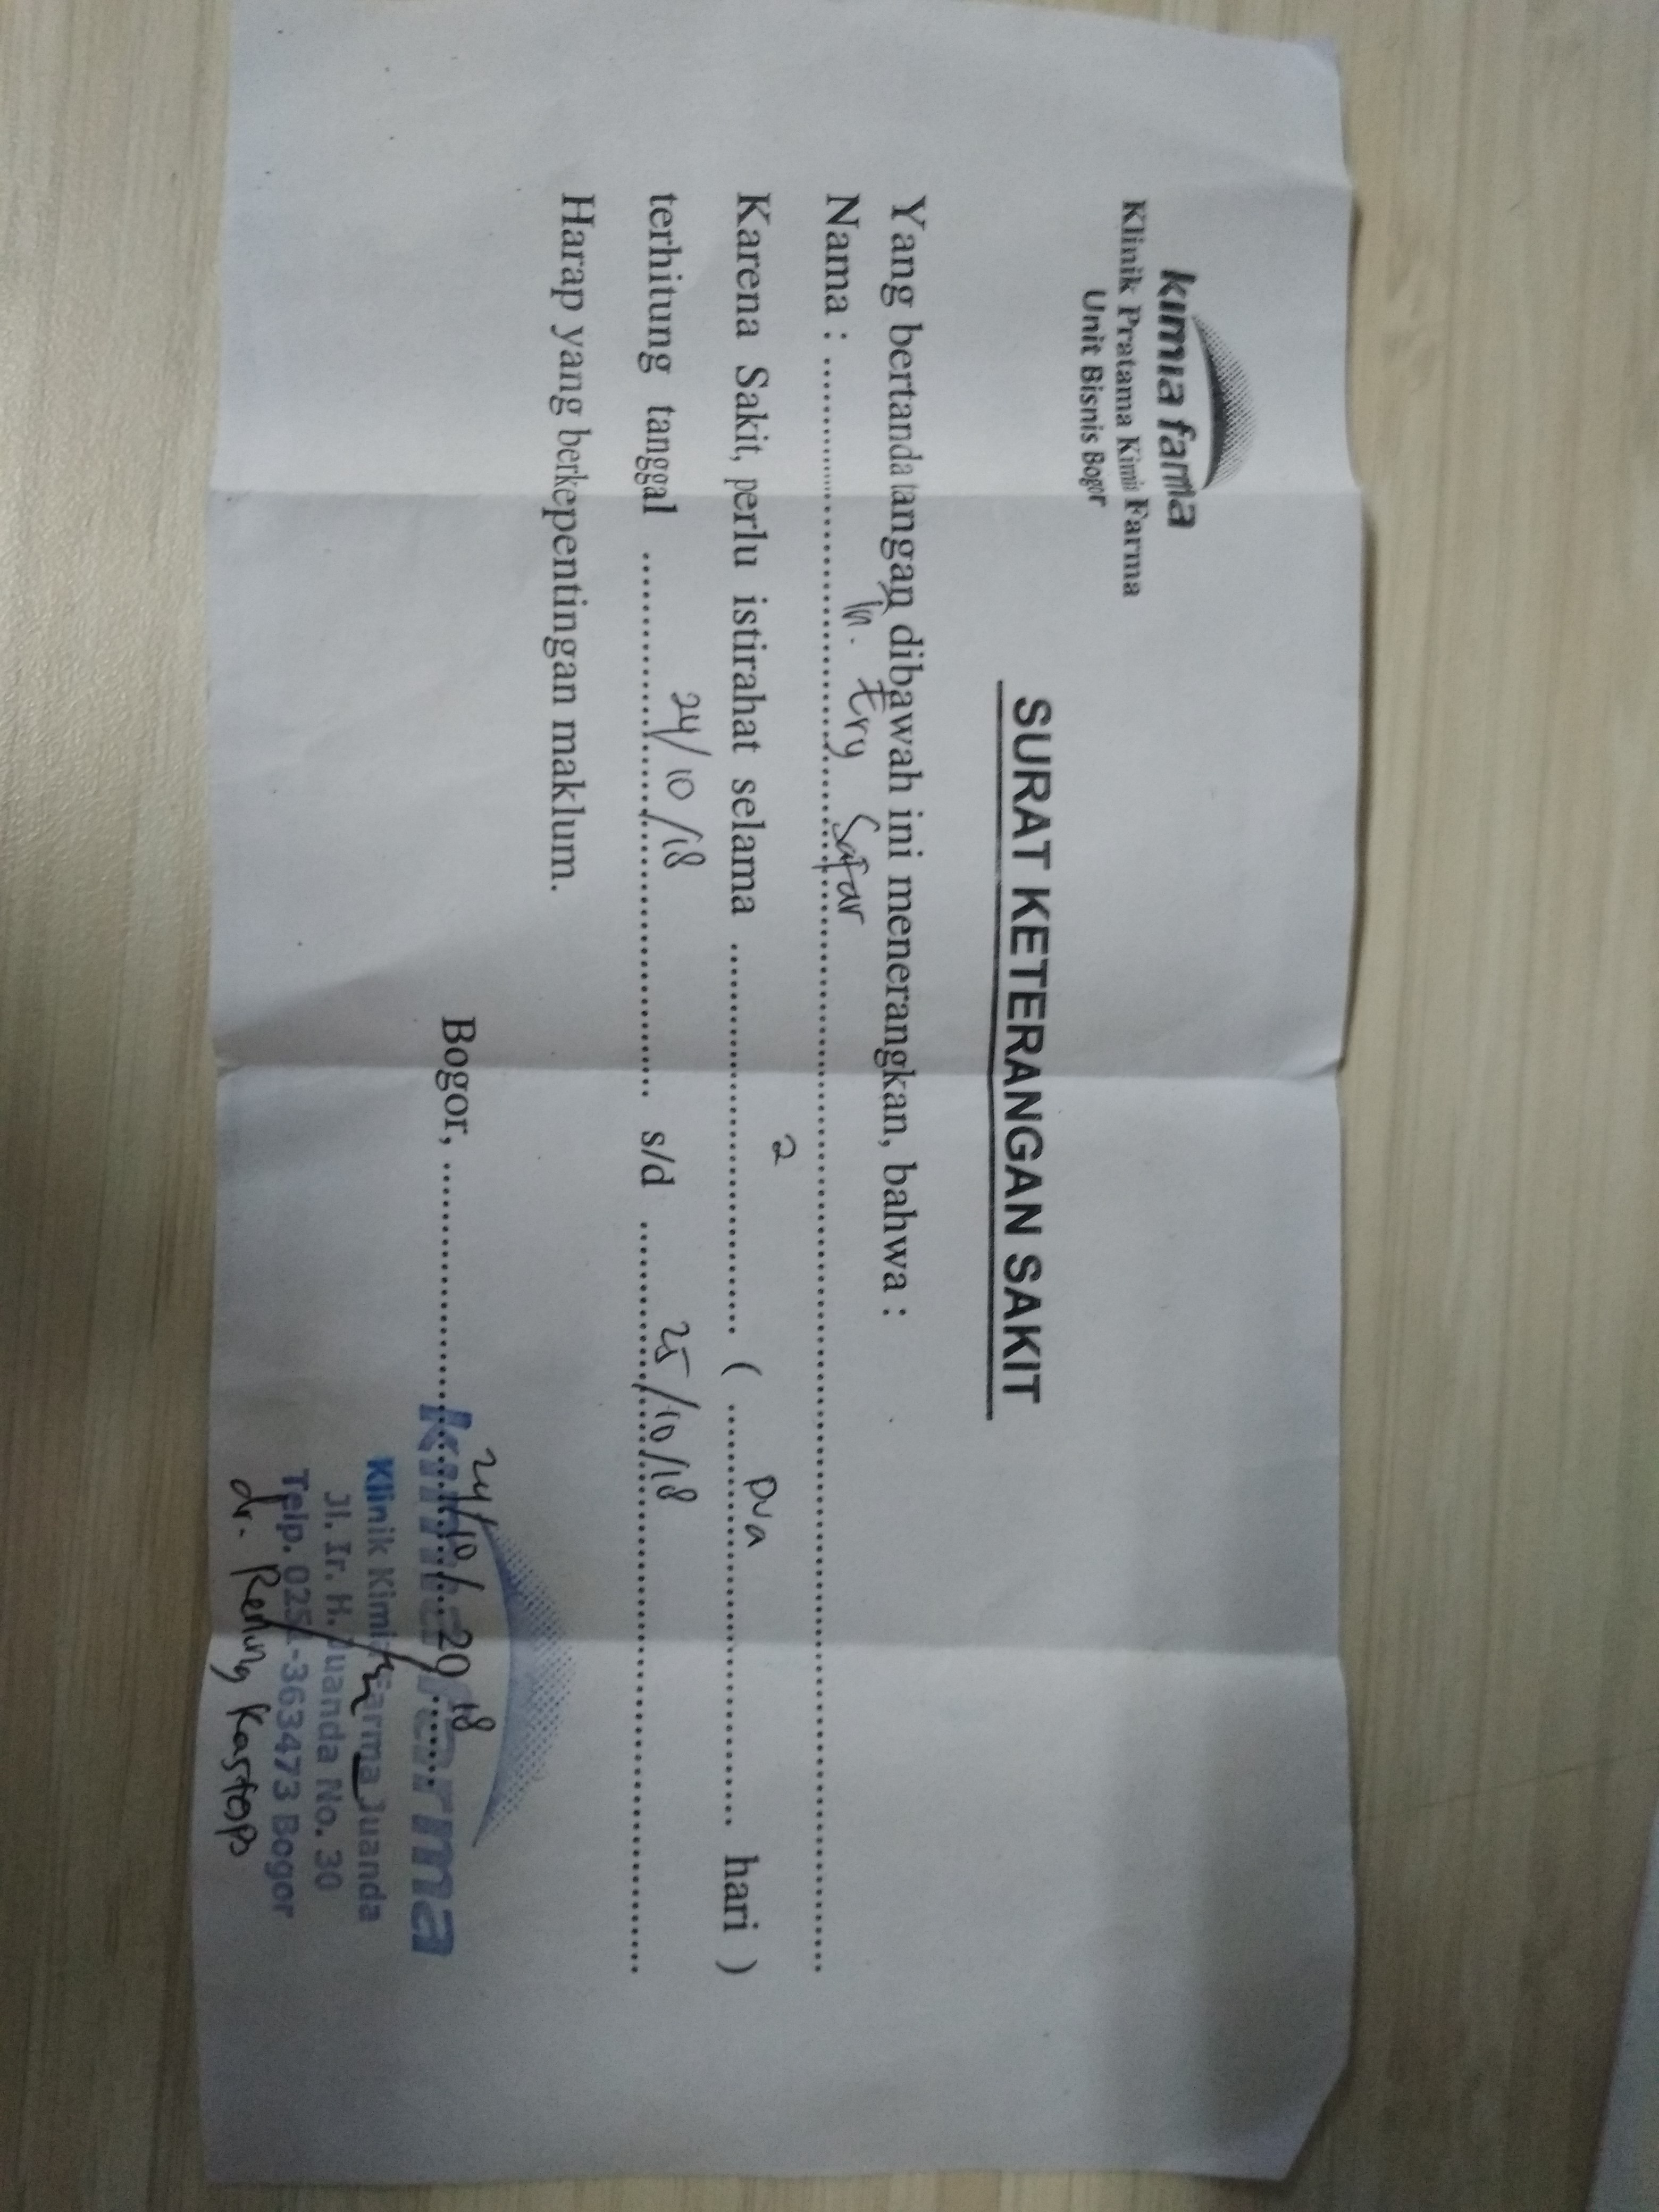 kimia farma
Klinik Pratama Kimia Farma
Unit Bisnis Bogor
SURAT KETERANGAN SAKIT
Yang bertanda tangan dibawah ini menerangkan, bahwa :
Nama : Tn. Ery Safar
Karena Sakit, perlu istirahat selama 2 ( Dua hari )
terhitung tanggal 24/10/18 s/d 25/10/18
Harap yang berkepentingan maklum.
Bogor, 24/10/ 2018
kimia farma
Klinik Kimia Farma Juanda
Jl. Ir. H. Juanda No. 30
Telp. 0251-363473 Bogor
dr.